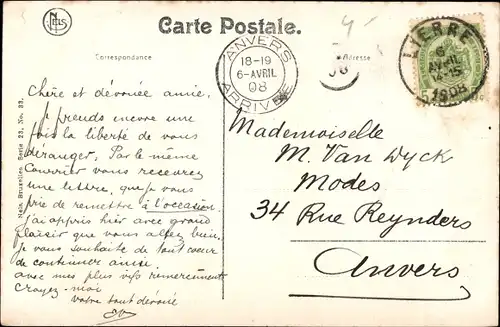 Nels
Carte Postale.
Correspondance
Adresse
ANVERS
18-19
6-AVRIL
08
ARRIVÉE
LIERRE
6
AVRIL
14-15
1908
Chère et dévouée amie,
je prends encore une
fois la liberté de vous
déranger. Par le même
courrier vous recevrez
une lettre, que je vous
prie de remettre à l'occasion.
j'ai appris hier avec grand
plaisir que vous allez bien,
je vous souhaite de tout coeur
de continuer ainsi
avec mes plus vifs remerciements
Croyez-moi
votre tout dévoué
Nels, Bruxelles Serie 23, No. 33.
Mademoiselle
M. Van Dyck
Modes
34 Rue Reynders
Anvers